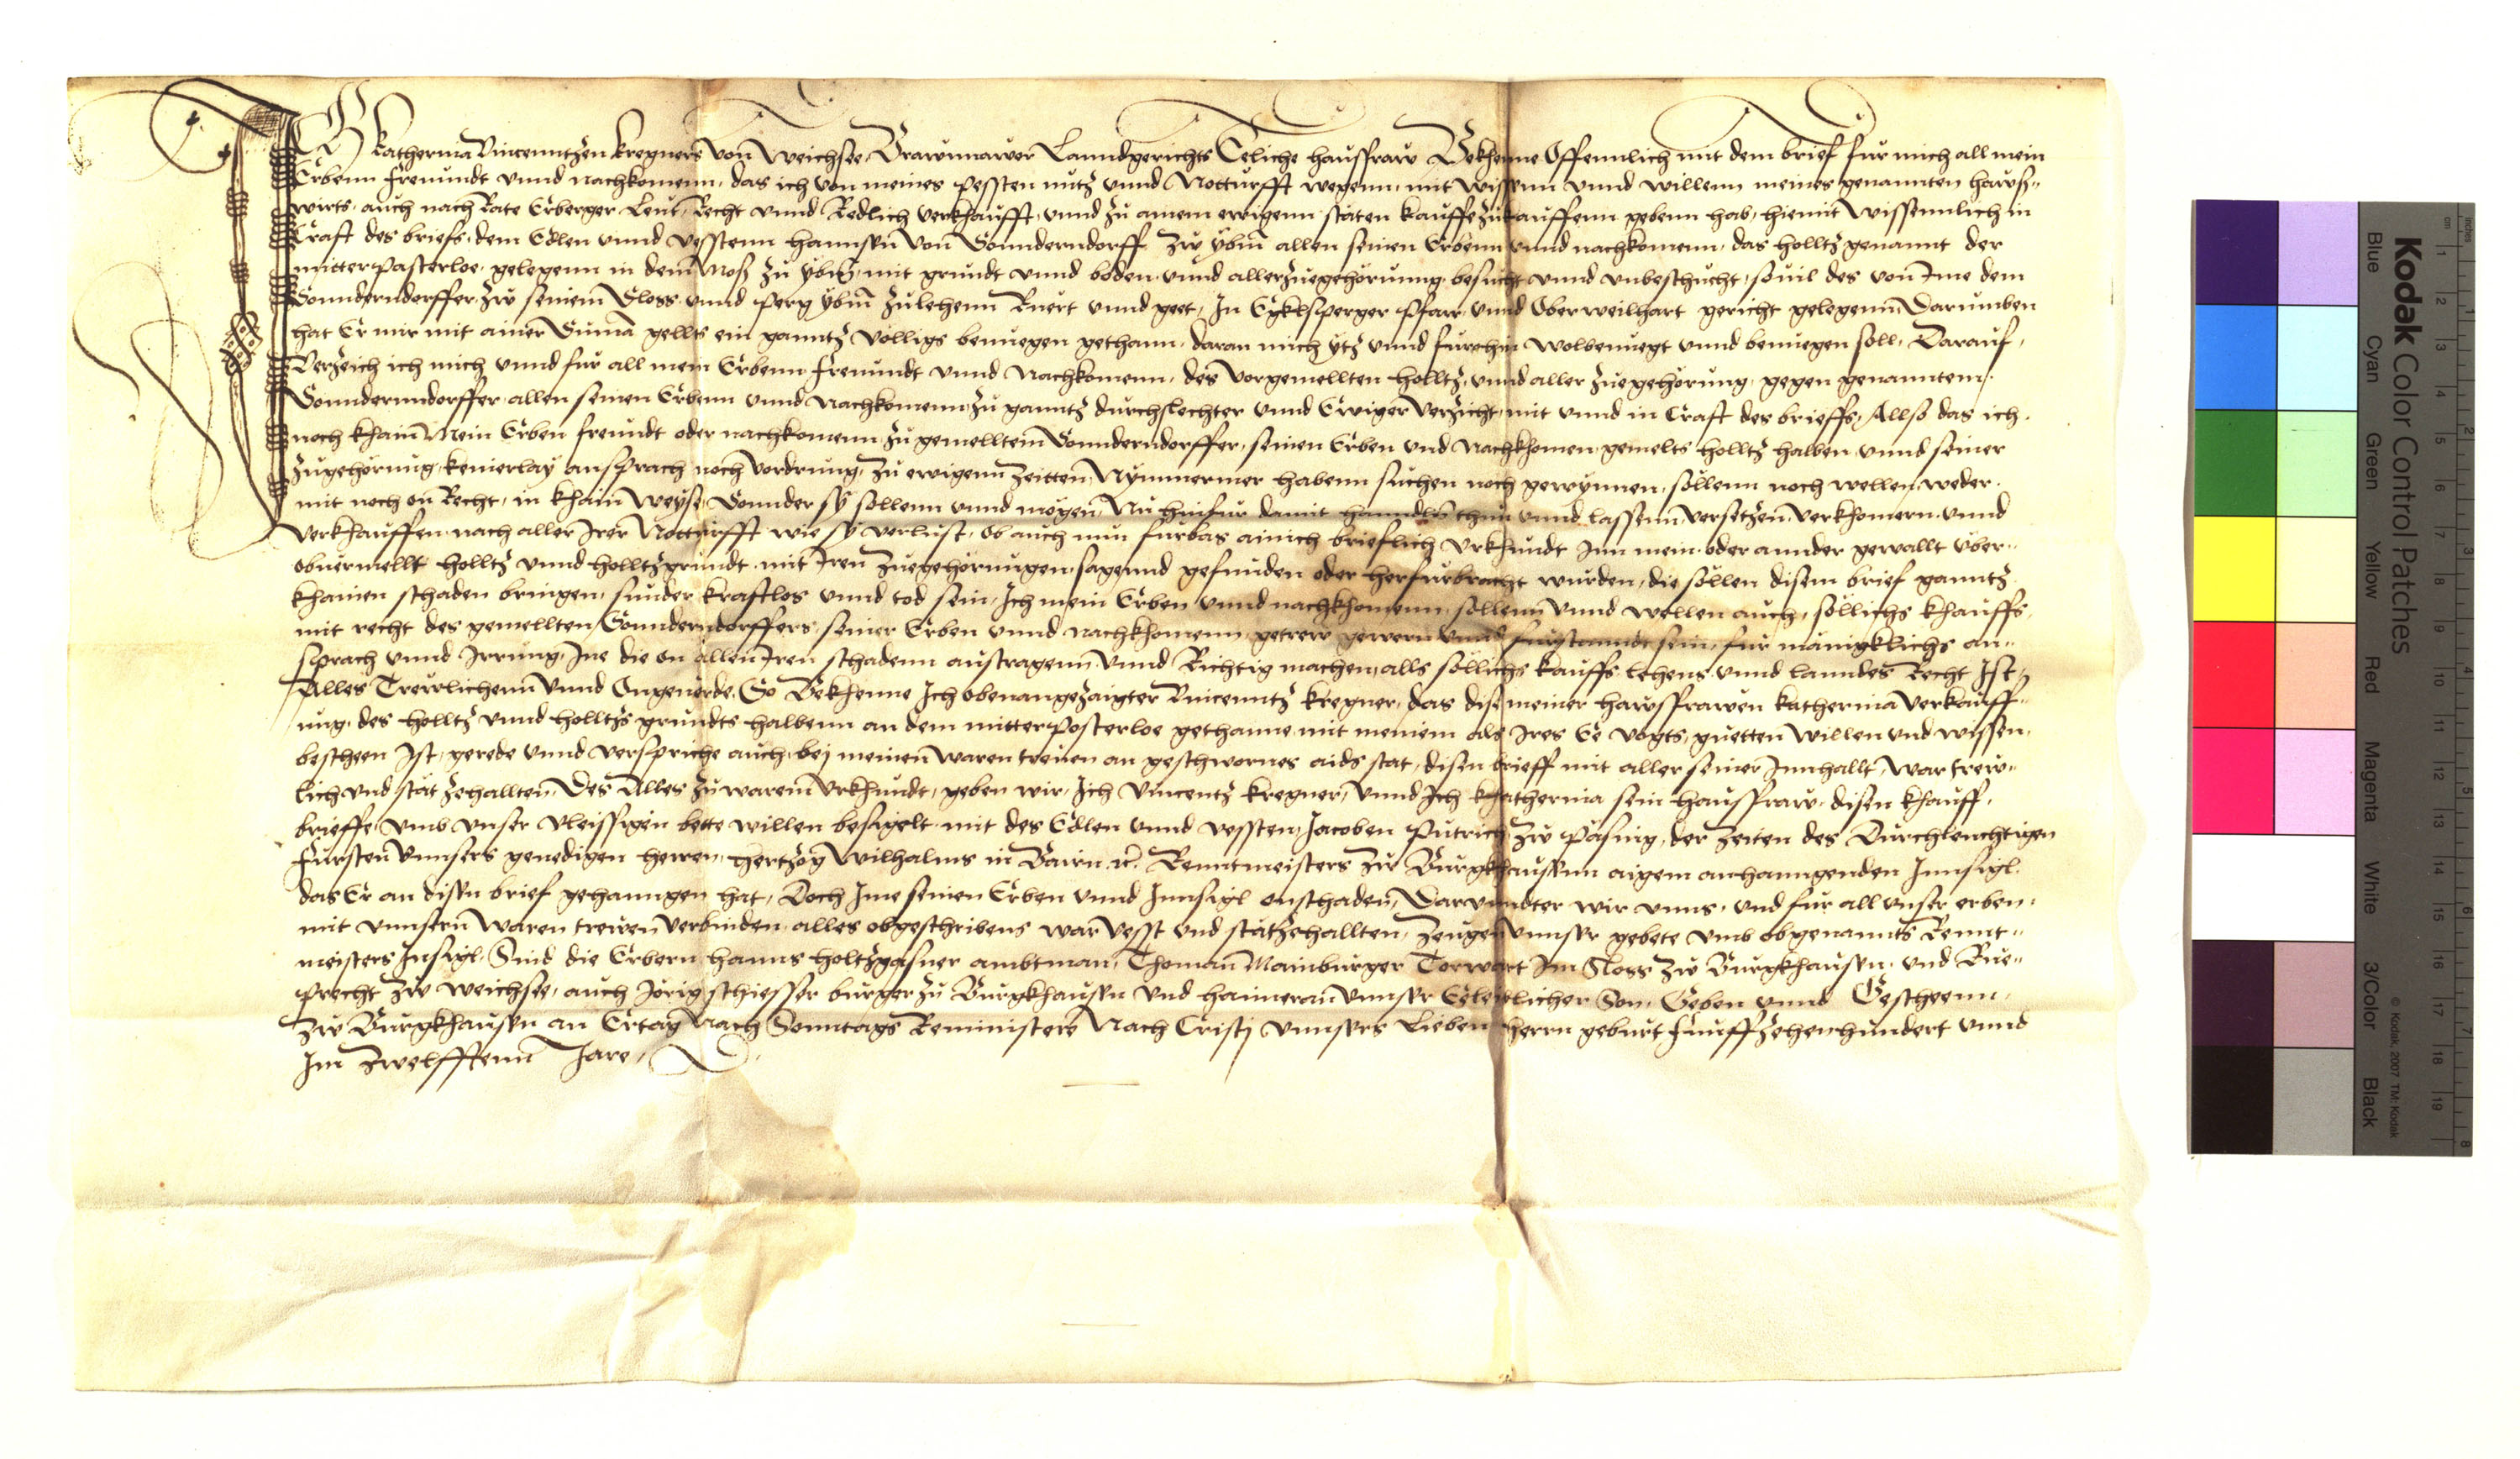 Ich Katherina Vincenntzen kregners von Weichsee, Brawnnawer Lanndgerichts Eeliche hausfraw Bekhenne Offennlich mit dem brief fur mich all mein
Erbenn freundt vnnd nachkomenn, das ich von meines pessten nutz vnnd Notturfft wegenn, mit wissenn vnnd willenn meines genannten haws-
wirts, auch nach Rate Erberger Leut, Recht vnnd Redlich verkhaufft, vnnd zu ainem ewigenn stäten kauffe zukauffenn gebenn hab, hiemit wissennlich in
Craft des briefs, dem Edlen vnnd vesstenn hannsen von Sonnderndorff zw ybm allen seinen Erbenn vnnd nachkomenn, das holltz genannt der
mitter pasterloe, gelegenn in dem Mos zu yb mit grundt vnnd boden vnnd aller zuegehörunng besucht vnnd vnbeschucht, souil des von Ime dem
Sonnderndorffer zw seinem Sloss vnnd perg ybm zulehenn Ruert vnnd geet, In Egklsperger pfarr vnnd Oberweilhart gericht gelegenn Darumben
hat Er mir mit ainer Suma gellts ein ganntz völligs benuegen gethann, daran mich ytz vnnd furohin wolbenuegt vnnd benuegen soll, Darauf,
Verzeich ich mich vnnd fur all mein Erbenn freundt vnnd Nachkomenn, des vorgemellten holltz, vnnd aller zuegehörung, gegen genanntem
Sonnderndorffer, allen seinen Erbenn vnnd Nachkomenn, zu ganntz durchslechter vnnd Ewiger verzicht, mit vnnd in Craft des brieffs, Allso das ich
noch khain Mein Erben freundt oder nachkomenn zu gemelltem Sonnderndorffer, seinen Erben vnd Nachkhomen gemelts holltz halben vnnd seiner
zugehörung, kenierlay ansprach noch vordrung, zu ewigenn zeitten, Nymmermer habenn suchen noch gewynnen, sollenn noch wellen, weder
mit noch on Recht, in khain Weyse, Sonnder sy sollenn vnnd mögen, Nu hinfur damit hanndln thun vnnd lassenn, versetzen, verkhomern vnnd
verkhauffen, nach aller Irer Notturfft wie sy verlust, Ob auch nun furbas ainich brieflich vrkhundt Inn mein oder annder gewallt vber-
obuermellt holltz vnnd holltzgrundt mit Iren zuegehörungen sagennd gefunden oder herfurbracht wurden, die söllen disem brief ganntz
khainen schaden bringen, sunder kraftlos vnnd tod sein, Ich mein Erben vnnd nachkhomenn, sollenn vnnd wellen auch, söllichs khauffs
mit recht des gemellten Sonnderndorffers seiner Erben vnnd nachkhomenn, getrew gewern vnnd furstannde sein, fur mänigklichs an-
sprach vnnd Irrung, Ine die on allen Iren schadenn austragenn vnnd Richtig machen, alls söllichs kauffs lehens vnnd lanndes Recht Ist,
Alles Trewlichenn vnnd Ongeuerde, So Bekhenne Ich obenangezaigter Vincenntz kregner, das dise meiner hawsfrawen katherina verkauff-
ung, des holltz vnnd holltzs grundts halbenn an dem mitter posterloe gethanne mit meinem als Ires Ee vogts, guetten willen vnd wissen
bescheen Ist, gerede vnnd verspriche auch, bej meinen waren treuen an geschwornes aids stat, disen brieff mit aller seiner Innhallt, war trew-
lich vnd stät zehallten, Des Alles zu warem vrkhundt, geben wir, Ich Vincentz kregner, vnnd Ich khatherina sein hausfraw, disen khauff
brieffe, vmb vnser vleissigen bette willen besigelt mit des Edlen vnnd vessten, Jacoben Putrich zw Päsing, der Zeiten des Durchleuchtigen
Fursten vnnsers genedigen herren, Hertzog Wilhalms in Bairn rc. Renntmeisters zw Burgkhausenn aigem anhanngenden Innsigl
das Er an disen brief gehanngen hat, Doch Ime seinen Erben vnnd Innsigl onschaden, Darvnndter wir vnns, vnd fur all vnser erben,
mit vnnsern waren trewen verbinden, alles obgeschribens war vesst vnd stätzehallten, Zeugen vnnser gebete vmb obgenannts Rennt-
meisters Insigl, Sind die Erbern hanns holtzgasner ambtman, Thoman Mainburger Torwart Im Sloss zw Burgkhausen, vnd Rue-
precht zw weichsee, auch Jorig schiesser burger zu Burgkhausen vnd haimeran vnnser Eeleiblicher Son, Geben vnnd Gescheenn,
zw Burgkhausen an Ertag Nach Sonntags Reministere Nach Cristj vnnsers Lieben herrn geburt Funffzehenhundert vnnd
Im Zwelfftenn Jare,
Kodak Color Control Patches
Blue Cyan Green Yellow Red Magenta White 3/Color Black
© Kodak, 2007 TM: Kodak
inches 1 2 3 4 5 6 7 8
cm 1 2 3 4 5 6 7 8 9 10 11 12 13 14 15 16 17 18 19